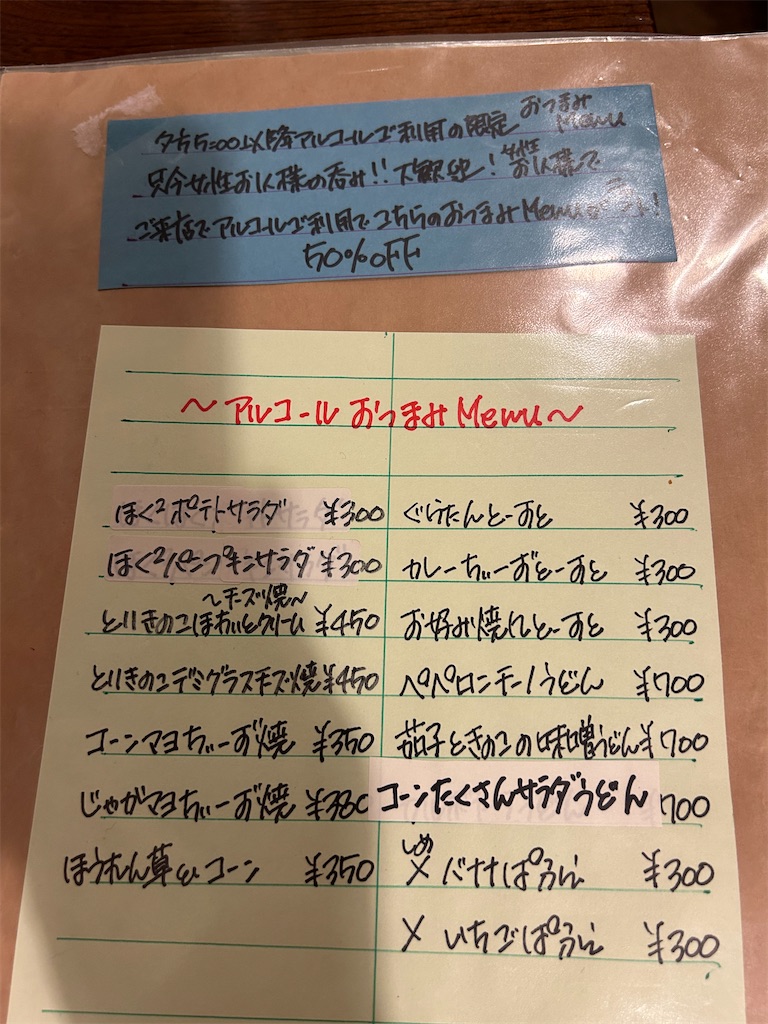 夕方5:00以降アルコールご利用の限定おつまみMenu
只今女性お1人様の呑み!!大歓迎!女性お1人様で
ご来店でアルコールご利用でこちらのおつまみMenuが
50%OFF
～アルコールおつまみMenu～
ほく²ポテトサラダ ¥300
ほく²パンプキンサラダ ¥300
～チーズ焼～
とりきのこほわいとクリーム ¥450
とりきのこデミグラスチーズ焼 ¥450
コーンマヨちぃーず焼 ¥350
じゃがマヨちぃーず焼 ¥380
ほうれん草&コーン ¥350
ぐらたんとーすと ¥300
カレーちぃーずとーすと ¥300
お好み焼きとーすと ¥300
ペペロンチーノうどん ¥700
茄子ときのこの味噌うどん ¥700
コーンたくさんサラダうどん 700
しめ
〆 バナナぱふぇ ¥300
〆 いちごぱふぇ ¥300